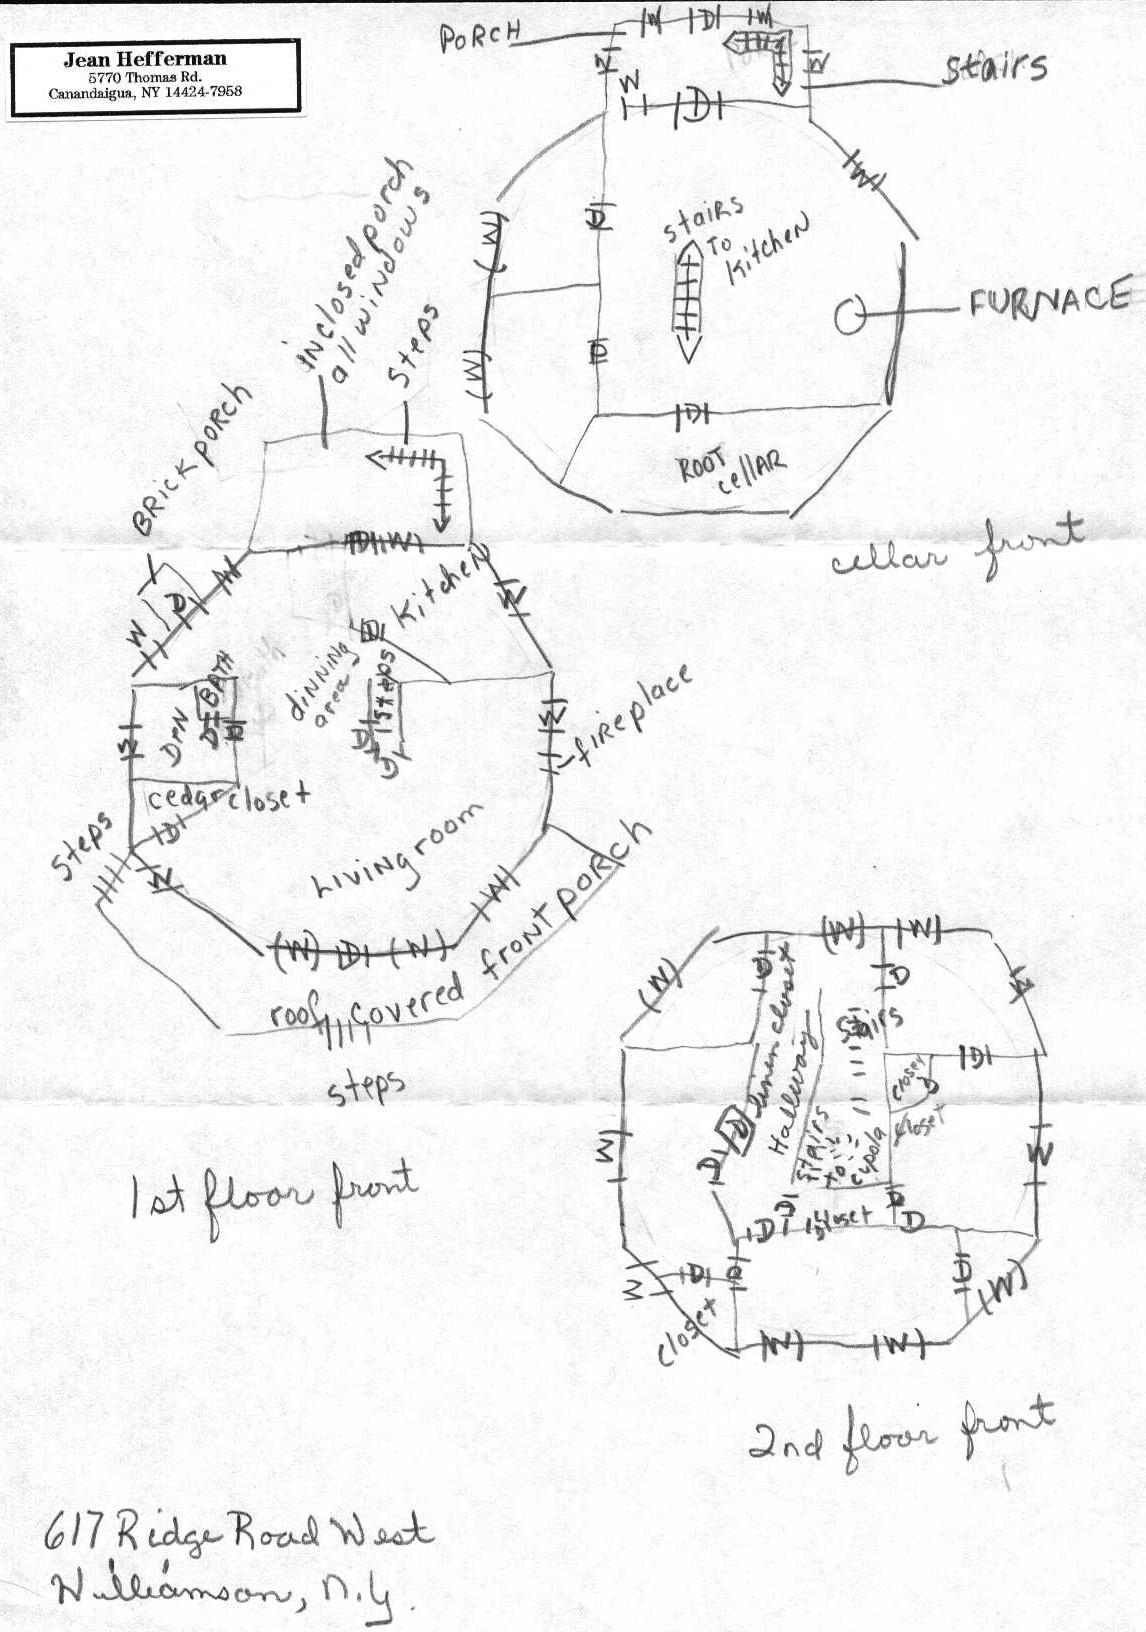 Jean Hefferman
5770 Thomas Rd.
Canandaigua, NY 14424-7958
PORCH
W D W
W
W
stairs
W
D
W
(W)
D
stairs
To
Kitchen
FURNACE
(W)
D
D
ROOT
cellAR
cellar front
inclosed porch
all windows
steps
BRick PORCH
D W
W
D
W
Kitchen
W
D
dinning
area
steps
D
D
BATH
DEN
D
D
W
W
fireplace
cedar closet
D
steps
W
Living room
W
(W) D (W)
roof covered front PORCH
steps
1st floor front
(W) W
(W)
W
D
D
linen closet
Hallway
stairs
D
closet
D
closet
D
D
stairs
to
cupola
W
W
D
D
D
D
closet
D
D
W
W
D
D
D
(W)
closet
W
(W)
2nd floor front
617 Ridge Road West
Williamson, N.Y.